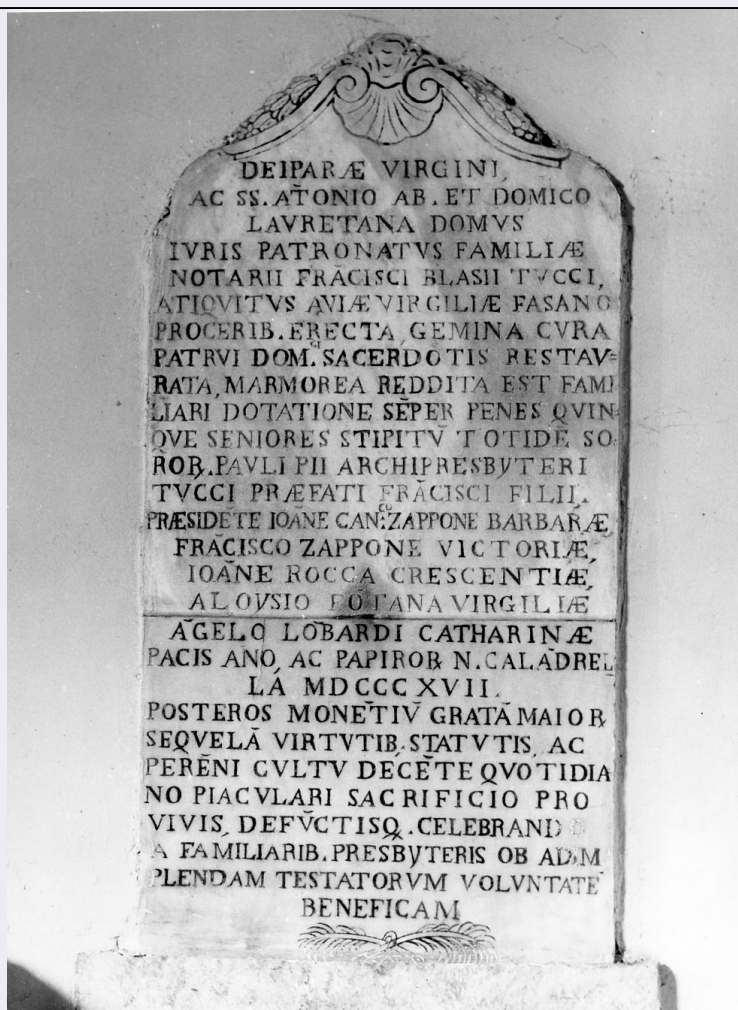 DEIPARÆ VIRGINI,
AC SS. AT̄ONIO AB. ET DOMICO
LAVRETANA DOMVS
IVRIS PATRONATVS FAMILIÆ
NOTARII FRĀCISCI BLASII TVCCI,
ATIQVITVS AVIÆ VIRGILIÆ FASANO
PROCERIB. ERECTA, GEMINA CVRA
PATRVI DOM.CI SACERDOTIS RESTAV=
RATA, MARMOREA REDDITA EST FAMI
LIARI DOTATIONE SĒPER PENES QVIN
QVE SENIORES STIPITV̄ TOTIDĒ SO
ROꝜ. PAVLI PII ARCHIPRESBYTERI
TVCCI PRÆFATI FRĀCISCI FILII.
PRÆSIDĒTE IOĀNE CAN:CO ZAPPONE BARBARÆ,
FRĀCISCO ZAPPONE VICTORIÆ,
IOĀNE ROCCA CRESCENTIÆ,
ALOYSIO FŌTANA VIRGILIÆ
ĀGELO LŌBARDI CATHARINÆ
PACIS ANO, AC PAPIROꝜ N. CALĀDREL
LÁ MDCCCXVII.
POSTEROS MONĒTIV̄ GRATĀ MAIOꝜ
SEQVELĀ VIRTVTIB. STATVTIS, AC
PERĒNI CVLTV DECĒTE QVOTIDIA
NO PIACVLARI SACRIFICIO PRO
VIVIS, DEFV̄CTISQ. CELEBRANDO
A FAMILIARIB. PRESBYTERIS OB ADIM
PLENDAM TESTATORVM VOLVNTATĒ
BENEFICAM